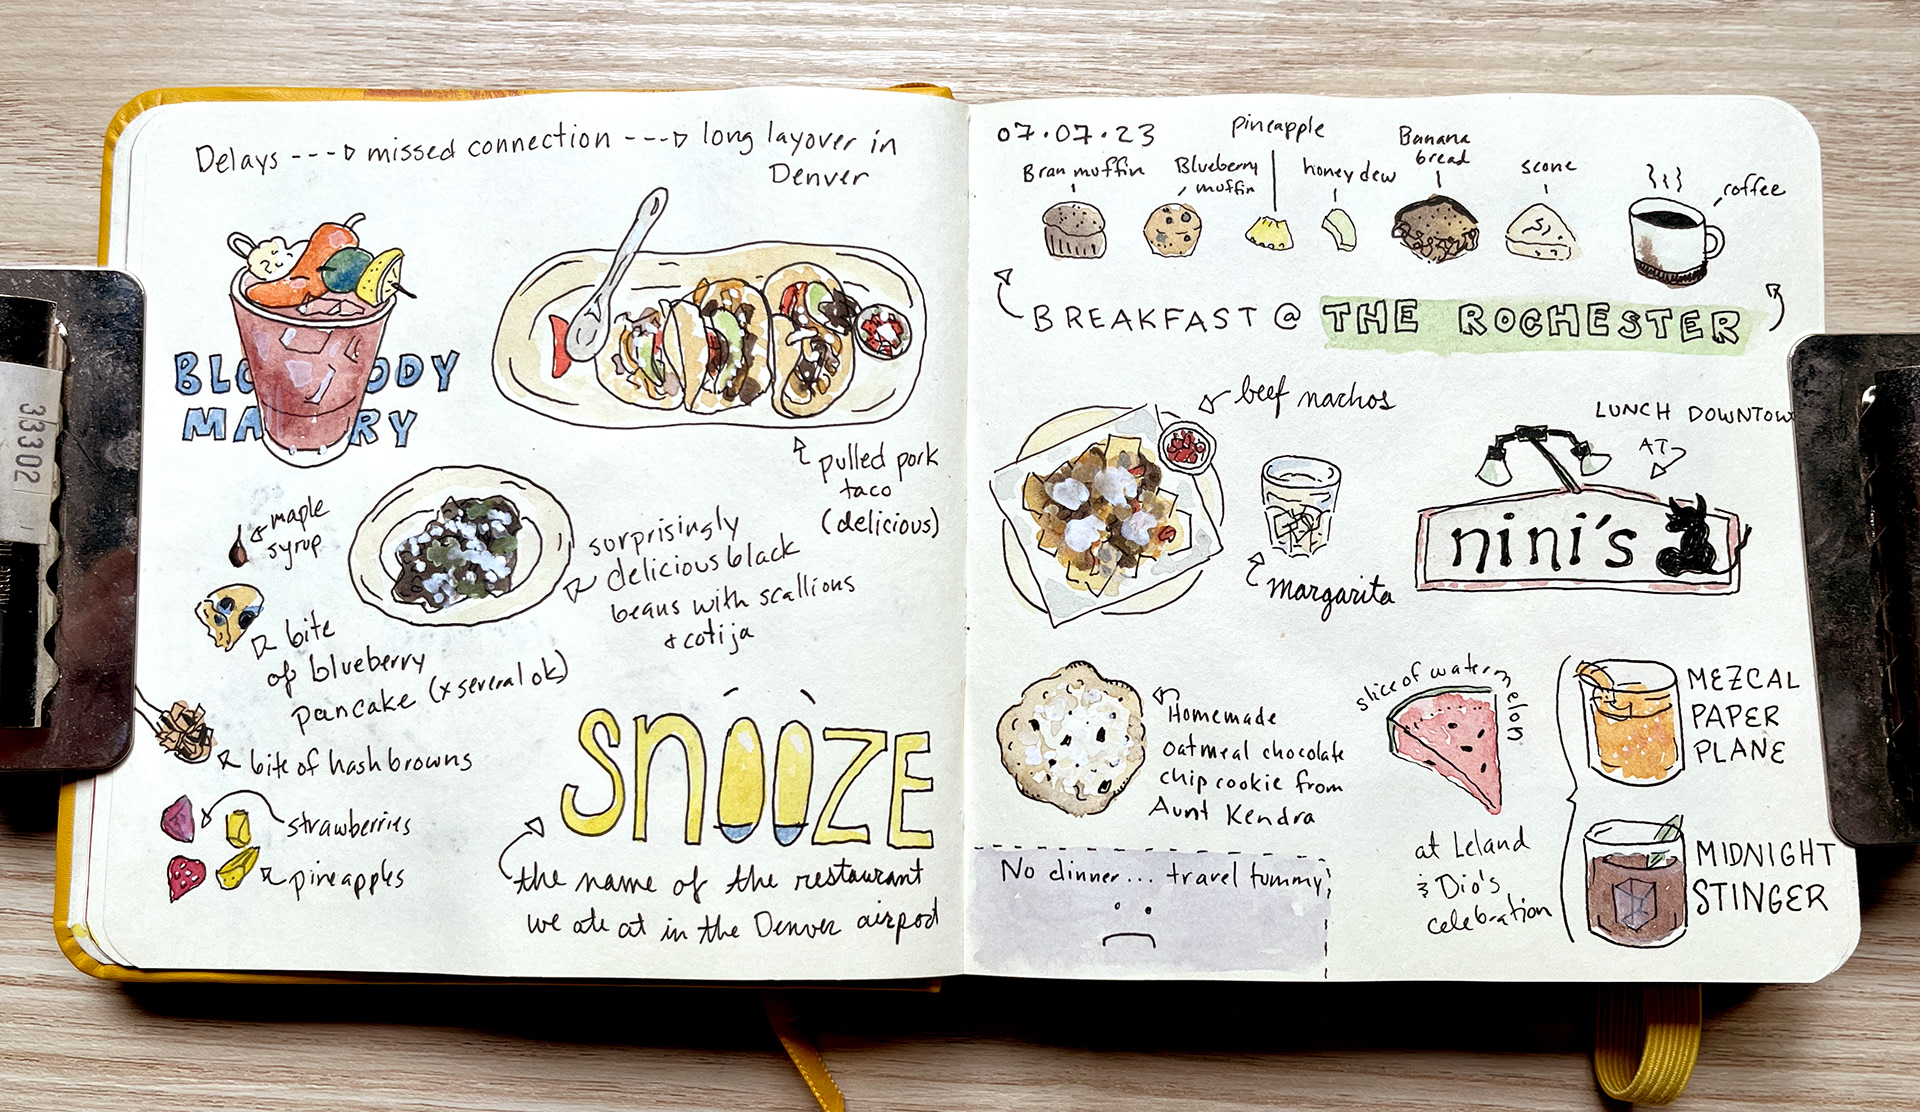 Delays ---> missed connection ---> long layover in
Denver
BLOODY
MARY
pulled pork
taco
(delicious)
maple
syrup
surprisingly
delicious black
beans with scallions
+ cotija
bite
of blueberry
pancake (x several ok)
bite of hashbrowns
strawberries
pineapples
SNOOZE
the name of the restaurant
we ate at in the Denver airport
33302
07.07.23
Bran muffin
Blueberry
muffin
pineapple
honey dew
Banana
bread
scone
coffee
BREAKFAST @ THE ROCHESTER
beef nachos
margarita
LUNCH DOWNTOW
AT
nini's
Homemade
oatmeal chocolate
chip cookie from
Aunt Kendra
slice of watermelon
MEZCAL
PAPER
PLANE
at Leland
& Dio's
celebration
MIDNIGHT
STINGER
No dinner... travel tummy